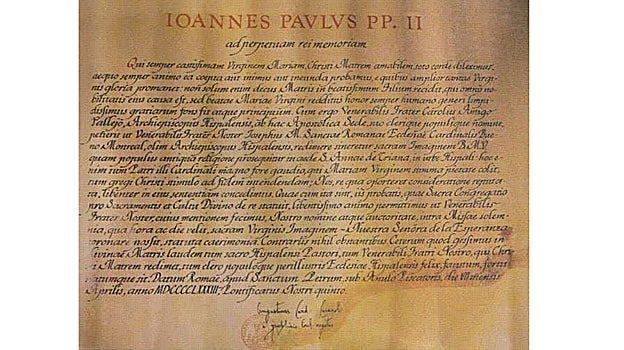 IOANNES PAVLVS PP. II
ad perpetuam rei memoriam
Qui semper castissimam Virginem Mariam, Christi Matrem amabilem, toto corde dileximus,
aequo semper animo ea coepta aut inimus aut ineunda probamus, e quibus amplior tantae Virgi-
nis gloria promanet: non solum enim decus Matris in beatissimum Filium recidit, qui omnis no-
bilitatis eius causa est, sed beatae Mariae Virgini redditus honor semper humano generi limpi-
dissimus gratiarum fons fit atque principium. Cum ergo Venerabilis Frater Carolus Amigo
Vallejo, Archiepiscopus Hispalensis, ab hac Apostolica Sede, suo clerique populique nomine,
petierit ut Venerabilis Frater Noster Iosephus M. Sanctae Romanae Ecclesiae Cardinalis Bue-
no Monreal, olim Archiepiscopus Hispalensis, redimere sineretur sacram Imaginem B.M.V.
quam populus antiqua religione prosequitur in aede S. Annae de Triana, in urbe Hispali: hoc e-
nim tum Patri illi Cardinali magno fore gaudio, qui Mariam Virginem summa pietate colit,
tum gregi Christi stimulo ad fidem intendendam; Nos, re qua oportere consideratione reputa-
ta, libenter in eius sententiam concedimus. Quae cum ita sint, iis probatis, quae Sacra Congregatio
pro Sacramentis et Cultu Divino de re statuit, libentissimo animo permittimus ut Venerabilis
Frater Noster, cuius mentionem fecimus, Nostro nomine atque auctoritate, intra Missae solem-
nia, qua hora ac die velit, sacram Virginis Imaginem - Nuestra Señora de la Esperanza
coronare possit, statuta caerimonia. Contrariis nihil obstantibus. Ceterum quod gessimus in
Divinae Matris laudem tum sacro Hispalensi Pastori, tum Venerabili Fratri Nostro, qui Chri-
sti Matrem redimet, tum clero populoque perillustri Ecclesiae Hispalensis felix, faustum, fortu-
natumque sit. Datum Romae, apud Sanctum Petrum, sub Anulo Piscatoris, die
Aprilis, anno Pontificatus Nostri quinto.